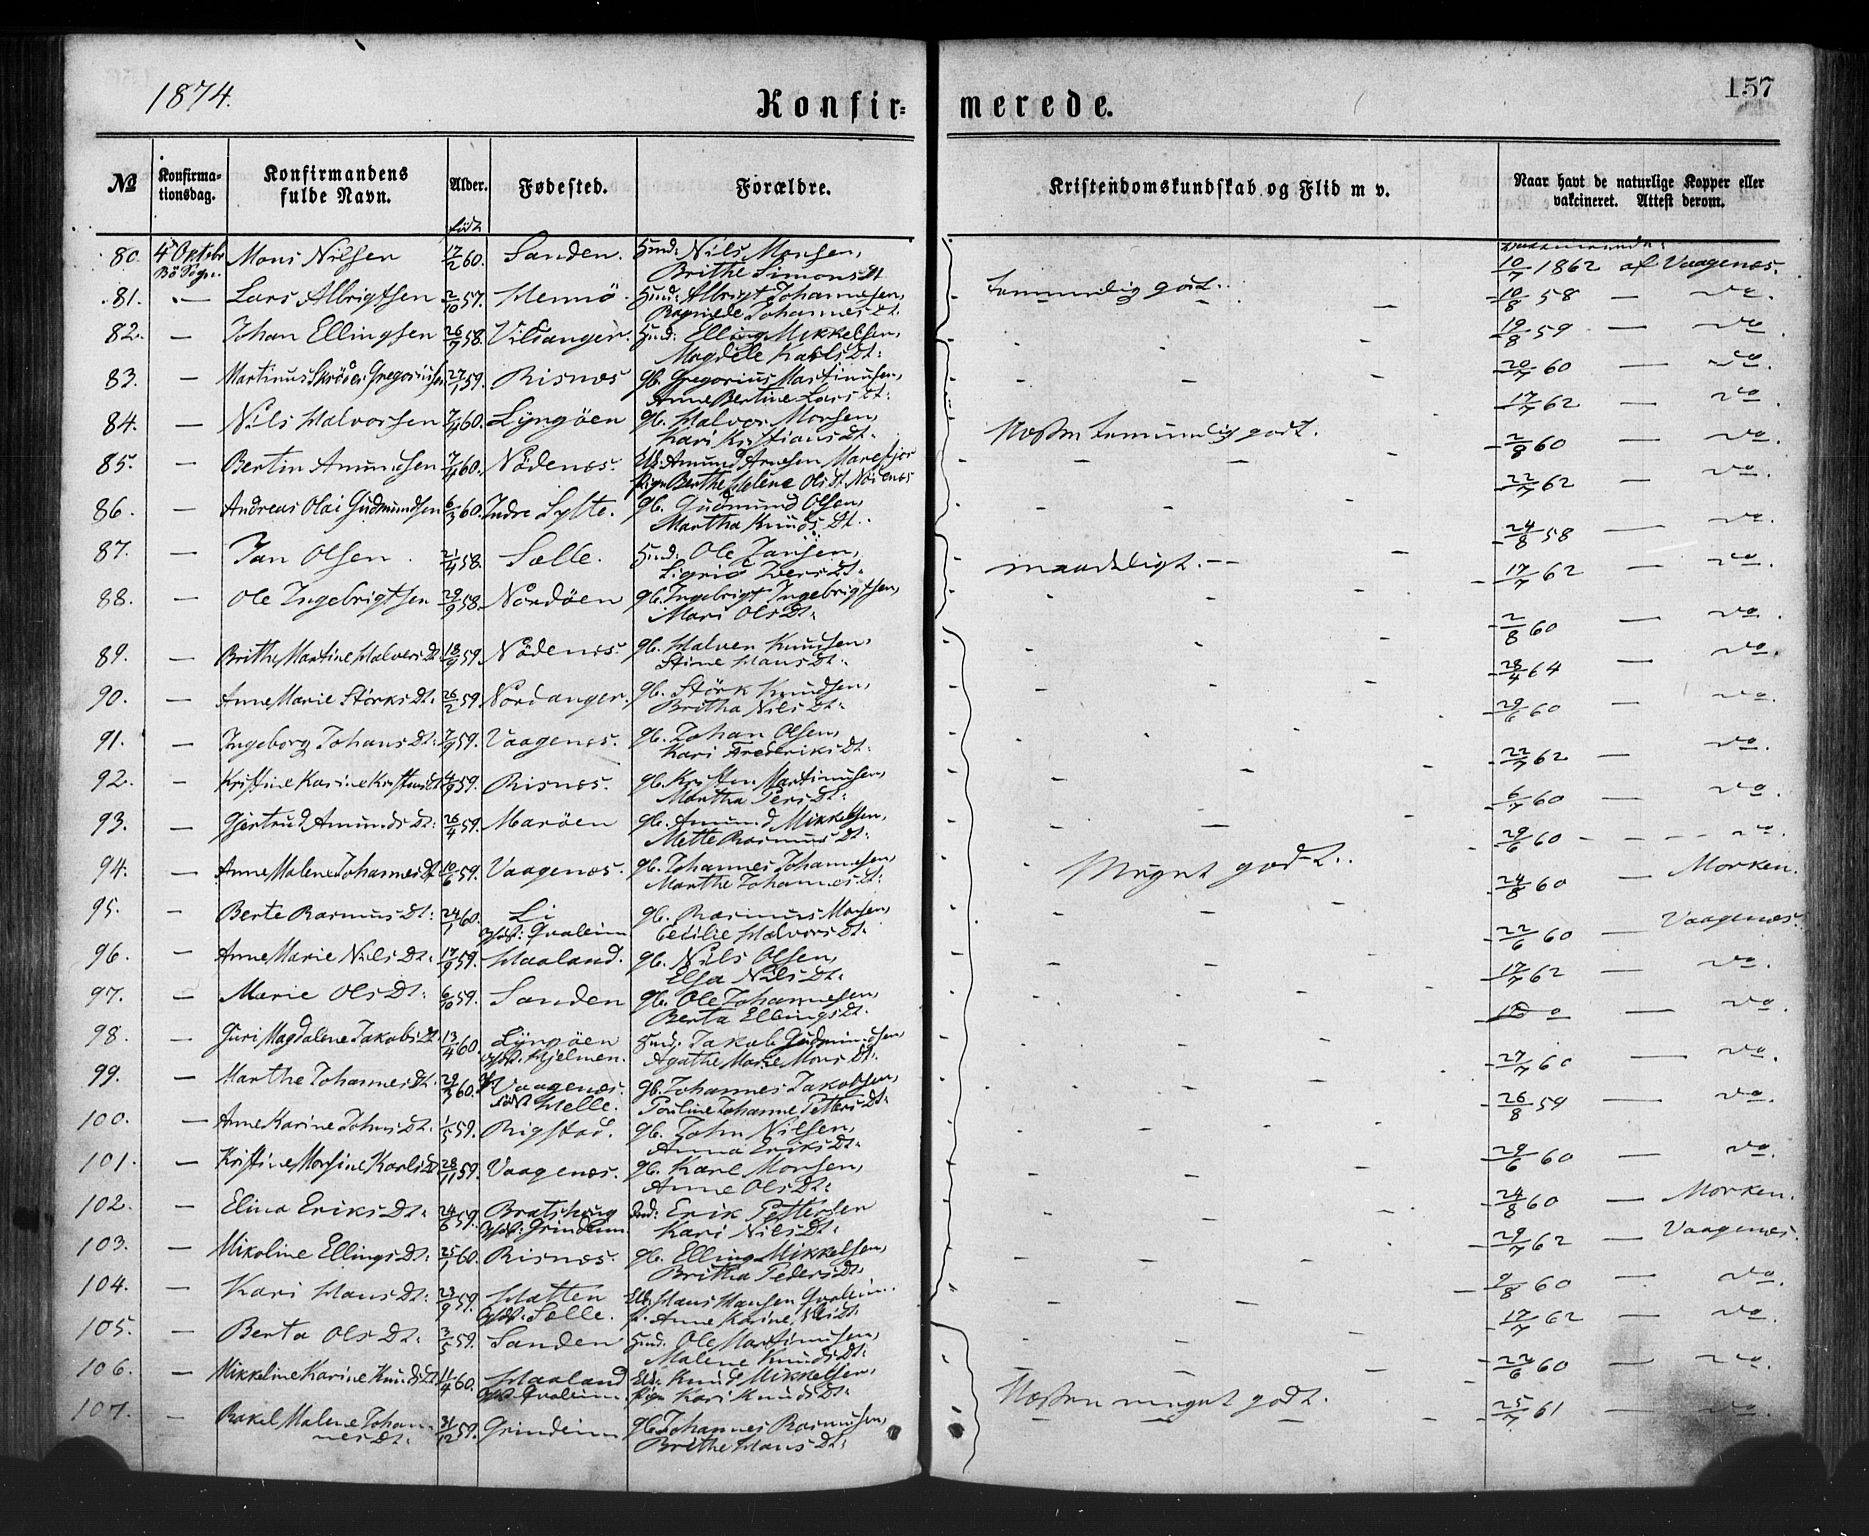 1874.
Konfir=
merede.
157
No
Konfirma-
tionsdag.
Konfirmandens
fulde Navn.
Alder.
født
Fødested.
Forældre.
Kristendomskundskab og Flid m v.
Naar havt de naturlige Kopper eller
vakcineret. Attest derom.
80. 4 Oktobr Mons Nilsen 17/2 60. Sanden. Husmd: Nils Monsen,
Bø Sogn. Brithe Simonsdt
10/7 1862 af Vaagenæs.
81. — Lars Albrigtsen 2/10 57. Hennö. Husmd: Albrigt Johannesen,
Ragnilde Johannesdt. temmelig godt. 10/8 58 — do.
82. — Johan Ellingsen 26/7 58. Vidsanger. Husmd: Elling Mikkelsen,
Magdele Karlsdt: 19/8 59 — do
83. — Martinus Skröder Gregoriussen 27/1 59. Risnes gb. Gregorius Martinusen,
Anne Bertine Larsdt: 20/7 60 — do.
84. — Nils Halvorsen 7/4 60. Lyngöen gb. Halvor Monsen,
Kari Kristiansdt. Næsten temmelig godt. 17/7 62 — do.
85. — Bertin Amundsen 7/4 60. Nödenes. Elk: Amund Arnesen Marefjor
Pige Berthe Helene Olsdt Nödenes 2/8 60 — do.
86. — Andreas Olai Gudmundsen 6/3 60. Indre Sylte. gb. Gudmund Olsen,
Martha Knudsdt. 22/7 62 — do.
87. — Jan Olsen. 21/4 58. Sölle. Husmd: Ole Jansen,
Sigrid Iversdt: maadeligt. 24/8 58 — do.
88. — Ole Ingebrigtsen 29/9 58. Nordöen gb. Ingebrigt Ingebrigtsen,
Mari Olsdt: 17/7 62 — do.
89. — Brithe Martine Halversdt 18/9 59. Nödenes. gb. Halven Knudsen,
Stine Hansdt. 2/8 60 — do.
90. — Anne Marie Störksdt. 26/2 59. Nordanger. gb. Störk Knudsen,
Britha Nilsdt: 28/4 64 — do.
91. — Ingeborg Johansdt: 7/9 59. Vaagenes. gb. Johan Olsen,
Kari Frederiksdt: 29/6 60 — do.
92. — Kristine Karine Kristensdt 4/9 59. Risnes. gb. Kristen Martinusen,
Martha Persdt: 22/7 62 — do.
93. — Gjertrud Amundsdt: 26/4 59. Maröen gb. Amund Mikkelsen,
Mette Rasmusdt: 6/7 60 — do.
94. — Anne Malene Johannesdt 10/6 59. Vaagenes. gb. Johannes Johannesen,
Marthe Johannesdt: Meget godt. 29/6 60 - - - do.
95. — Berte Rasmusdt: 24/1 60. Li gb. Rasmus Monsen,
Opdt: Qvaleim Cecilie Halvorsdt: 24/8 60 — Morken.
96. — Anne Marie Nilsdt: 17/9 59. Haaland. gb. Nils Olsen,
Elsa Nilsdt: 22/6 60 — Vaagenæs.
97. — Marie Olsdt: 6/10 59. Sanden gb. Ole Johannesen,
Berta Ellingsdt. 17/7 62 — do.
98. — Guri Magdalene Jakobsdt. 13/4 60. Lyngöen Husmd: Jakob Gudmundsen,
Opdt. Hjelmen. Agathe Marie Monsdt: do.
99. — Marthe Johannesdt. 29/3 60. Vaagenæs. gb. Johannes Jakobsen,
född Helle. Pauline Johanne Pettersdt: 27/7 60 — do.
100. — Anne Karine Johnsdt. 1/5 59. Rigstad. gb. John Nilsen,
Anna Eriksdt: 26/8 59 — do.
101. — Kristine Monsine Karlsdt 28/11 59. Vaagenæs. gb. Karl Monsen,
Anne Olsdt: 29/6 60 — do.
102. — Elina Eriksdt: 24/6 59. Bratshoug Ind: Erik Pettersen
Opdt: Grindeim. Kari Nilsdt: 24/8 60 — Morken.
103. — Nikoline Ellingsdt: 25/1 60. Risnæs. gb. Elling Mikkelsen,
Britha Pedersdt. 29/7 62 — Vaagenæs.
104. — Kari Hansdt: 23/9 59. Hatten Elk: Hans Hansen Qvaleim.
Opdt: Sölle. p. Anne Karine 9/8 60 — do.
105. — Berta Olsdt: 3/5 59. Sanden Husmd: Ole Martinusen,
Malene Knudsdt: 17/7 62 — do.
106. — Mikkeline Karine Knudsdt 11/4 60. Haaland Elk: Knud Mikkelsen,
Opdt. Qvaleim. Pige Kari Knudsdt: 22/6 60 — do.
107. — Rakel Malene Johan- 31/12 59. Grindeim gb. Johannes Rasmusen,
nesdt: Brithe Hansdt: Næsten meget godt. 25/7 61 — do.